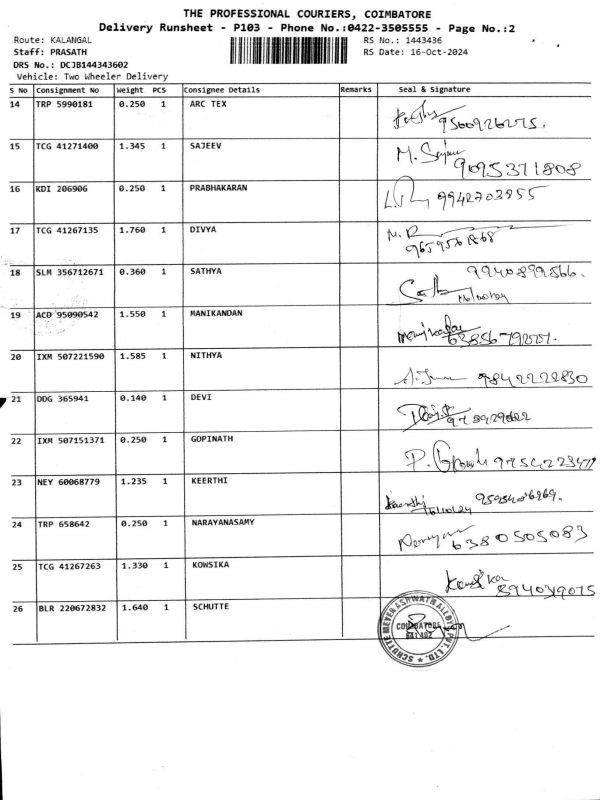 THE PROFESSIONAL COURIERS, COIMBATORE
Delivery Runsheet - P103 - Phone No.:0422-3505555 - Page No.:2
Route: KALANGAL RS No.: 1443436
Staff: PRASATH RS Date: 16-Oct-2024
DRS No.: DCJB144343602
Vehicle: Two Wheeler Delivery
S No Consignment No Weight PCS Consignee Details Remarks Seal & Signature
14 TRP 5990181 0.250 1 ARC TEX
9500926275.
15 TCG 41271400 1.345 1 SAJEEV M. Sajeev
9095371808
16 KDI 206906 0.250 1 PRABHAKARAN 9942703855
17 TCG 41267135 1.760 1 DIVYA
18 SLM 356712671 0.360 1 SATHYA 9940899566.
19 ACD 95090542 1.550 1 MANIKANDAN Manikandan
20 IXM 507221590 1.585 1 NITHYA
9842222830
21 DDG 365941 0.140 1 DEVI
22 IXM 507151371 0.250 1 GOPINATH
23 NEY 60068779 1.235 1 KEERTHI Keerthi
24 TRP 658642 0.250 1 NARAYANASAMY
6380505083
25 TCG 41267263 1.330 1 KOWSIKA Kowsika
894039015
26 BLR 220672832 1.640 1 SCHUTTE
SCHUTTE MEYER ASHWATH ALLOYS PVT. LTD.
COIMBATORE
641 402